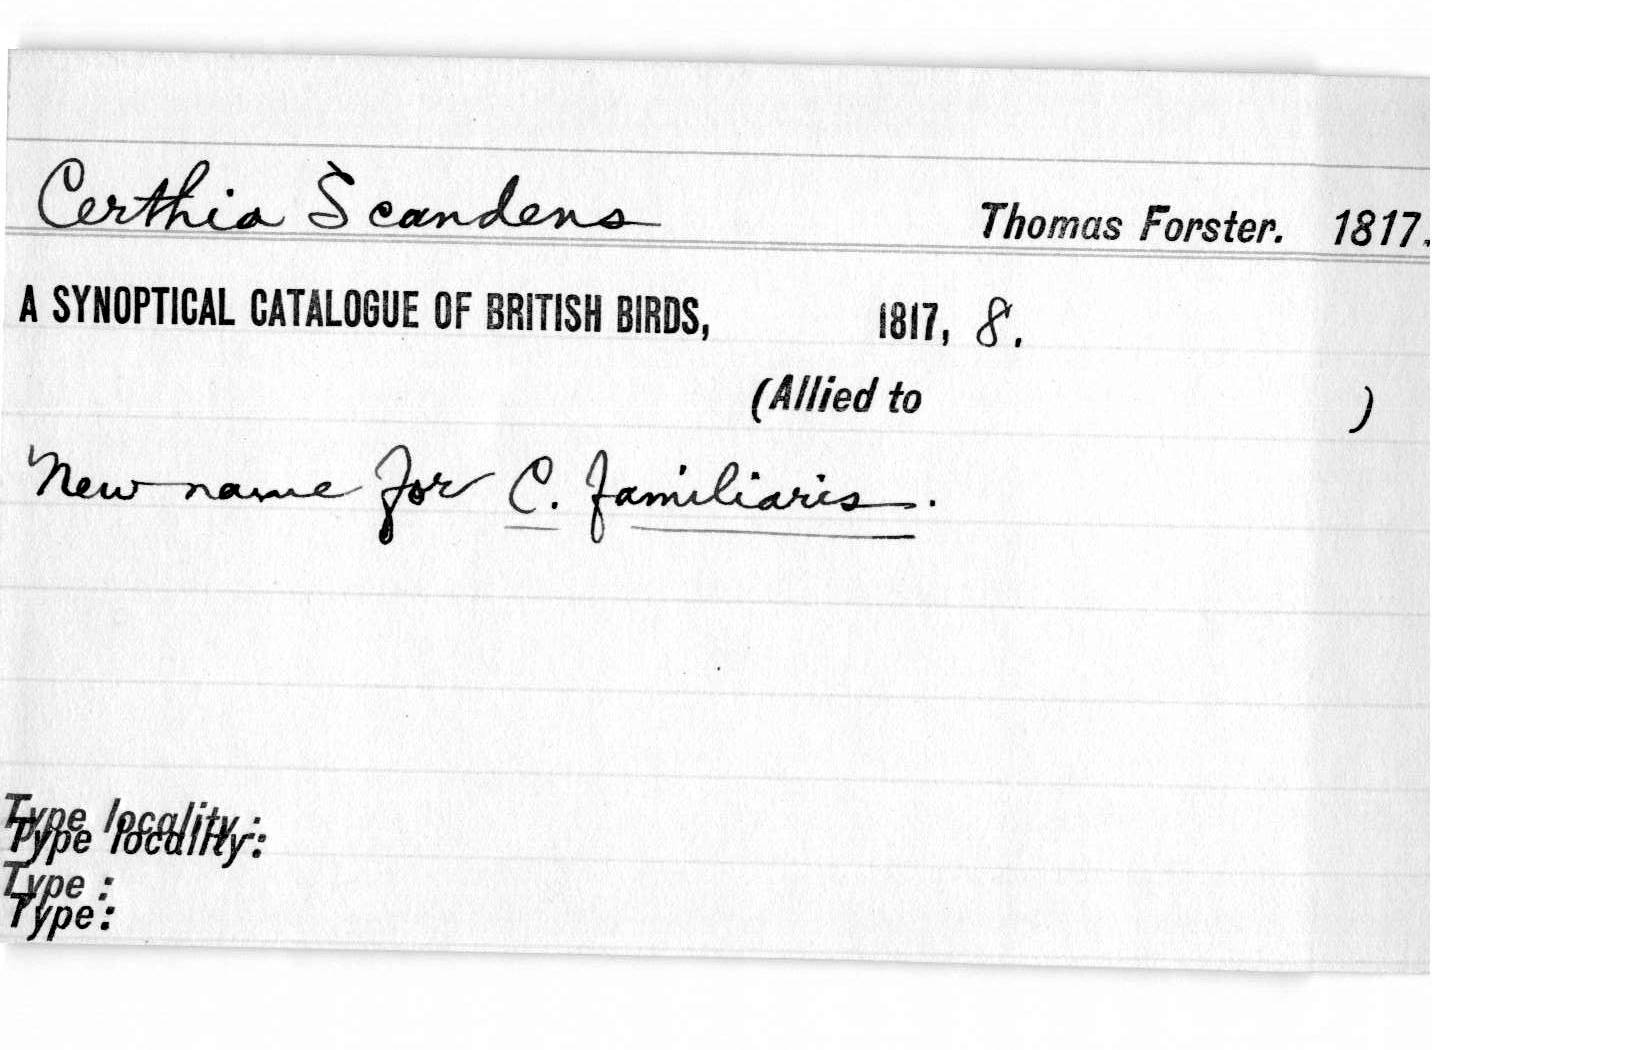 Certhia Scandens Thomas Forster. 1817.
A SYNOPTICAL CATALOGUE OF BRITISH BIRDS, 1817, 8.
(Allied to )
New name for C. familiaris.
Type locality:
Type locality:
Type:
Type: